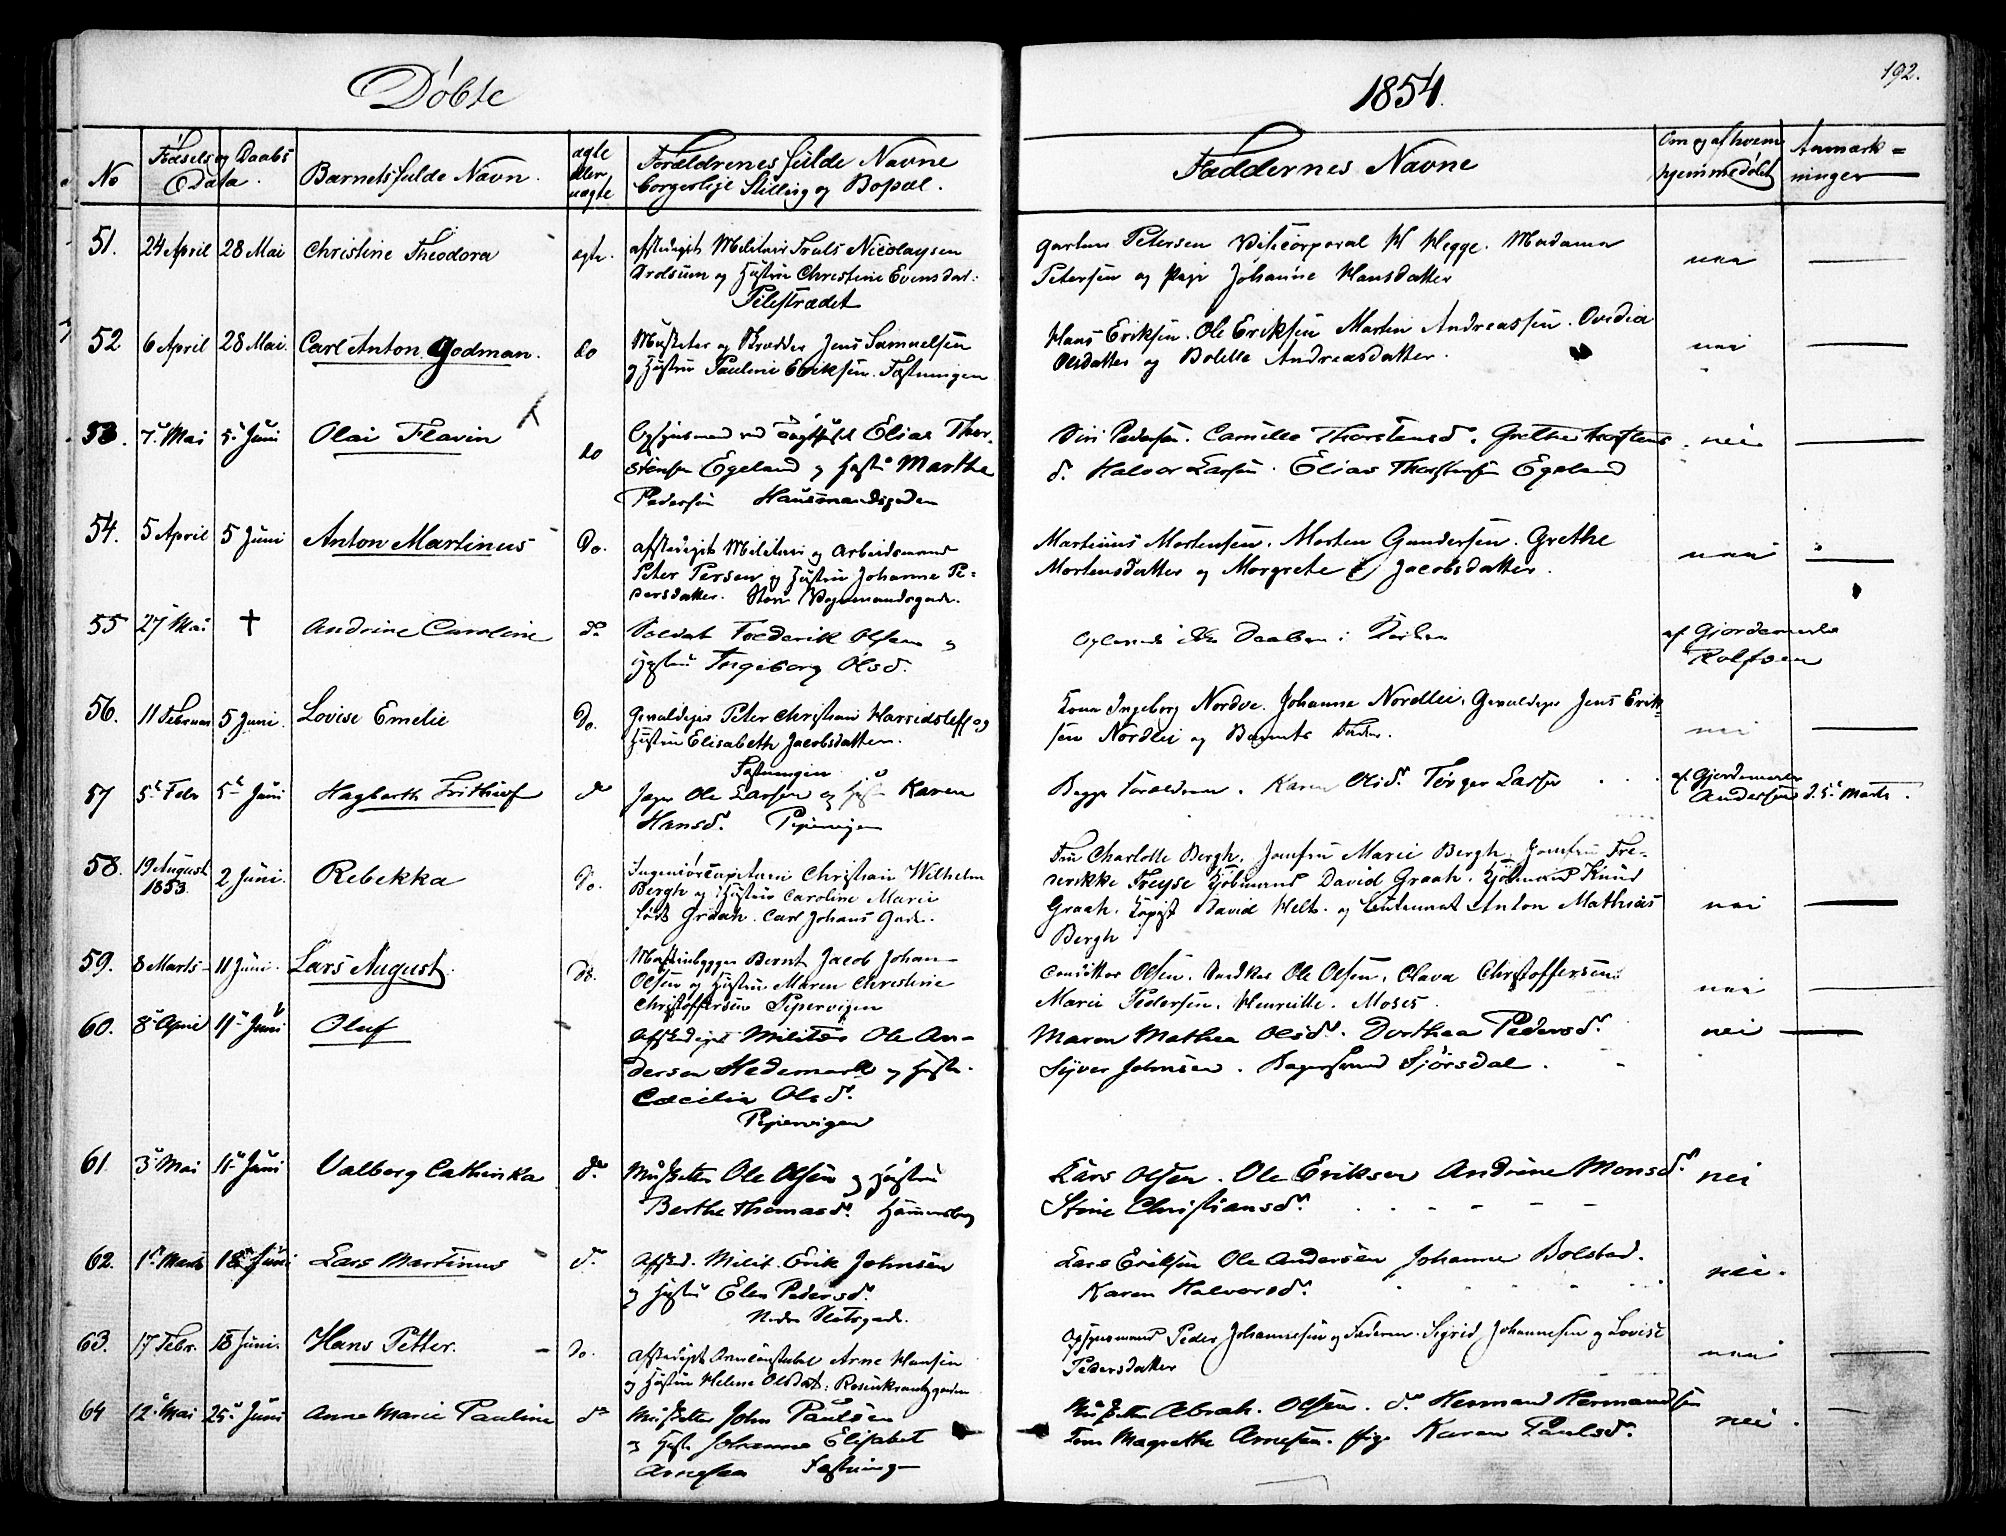 Døbte
1854.
192.
No
Fødsels og Daabs
Data.
Barnets fulde Navn.
ægte
eller
uægte
Forældrenes fulde Navne
borgerlige Stilling og Bopæl.
Faddernes Navne
Om og af hvem
hjemmedøbt
Anmærk=
ninger
51. 24 April 28 Mai Christine Theodora ægte. afskediget Militair Truls Nicolaysen
og Hustru Christine Evensdat:
Pilestrædet
Petersen Vicecorporal H Hegge. Madame
Petersen og Pige Johanne Hansdatter
nei
52 6 April 28 Mai. Carl Anton Godman. do Musketer og Skrædder Jens Samuelsen
og Hustru Pauline Eriksen. Fæstningen
Hans Eriksen. Ole Eriksen Martin Andreassen. Ovidia
Olsdatter og Bolette Andreasdatter.
nei
53. 7 Mai 5 Juni Olai Flavin do Opsynsmand ved Tugthuset Elias Thor-
stensen Egeland og Hustru Marthe
Pedersen Hausmandsgaden
Siri Pedersen. Camilla Thorstensd. Grethe Thorstens
d. Halvor Larsen. Elias Thorstensen Egeland
nei
54. 5 April 5 Juni Anton Martinus Do. afskediget Militair og Arbeidsmand
Peter Persen og Hustru Johanne Pe-
dersdatter. Store Vognmandsgade.
Martinus Mortensen. Morten Gundersen. Grethe
Mortensdatter og Margrete Jacobsdatter.
nei
55 27 Mai † Andrine Caroline do Soldat Frederik Olsen og
Hustru Ingeborg Olsd.
Oplæst ikke Daaben i Kirken
af Gjordemoder
Rolfsen
56. 11 Februar 5 Juni. Lovise Emelie Do. Gevaldiger Peter Christian Harsidsleff og
Hustru Elisabeth Jacobsdatter.
Fæstningen
Kone Ingeborg Nordve. Johanna Nordlei. Gevaldiger Jens Erik-
sen Nordlei og Barnets Fader.
nei
57 5 Febr 5 Juni Hagbarth Frithiof do Jæger Ole Larsen og Hustru Karen
Hansd. Pipervigen
Begge Forældrene. Karen Olsd. Tørger Larsen
af Gjordemoder
Andersen d. 5 Marts.
58. 19 August
1853 2 Juni. Rebekka Do. Ingeniørcapitain Christian Wilhelm
Bergh og Hustru Caroline Marie
født Graah. Carl Johans Gade.
Fru Charlotte Bergh. Jomfru Marie Bergh. Jomfru Fre-
derikke Freyse Kjøbmand David Graah. Kjøbmand Knud
Graah. Kopist David Welh. og Lieutenant Anton Mathias
Bergh
nei
59. 8 Marts 11 Juni. Lars August. do. Maskinbygger Bernt Jacob Johan
Olsen og Hustru Maren Christine
Christoffersen Pipervigen
Olsen. Snedker Ole Olsen. Olava Christoffersen.
Marie Pedersen. Henriette Moses.
nei
60. 8 April 11 Juni Oluf Afskediget Militær Ole An-
dersen Hedemark og Hustr.
Cæcilia Olsd.
Pipervigen
Maren Mathea Olsd. Dorthea Pedersd.
Syver Johnsen. Bagersvend Sjørsdal.
nei
61 3 Mai 11 Juni Valborg Cathinka do. Musketer Ole Olsen og Hustru
Berthe Thomasd. Hammersborg
Lars Olsen. Ole Eriksen Andrine Monsd.
Stine Christiansd.
nei
62. 1 Marts 18 Juni Lars Martinus do. Afsked. Milit. Erik Johnsen
og Hustru Elen Pedersd.
Nedre Slotsgade.
Lars Eriksen Ole Andersen Johanne Bolstad.
Karen Halvorsd.
nei.
63. 17 Febr. 18 Juni. Hans Petter. do. Afskediget Arne Hansen
og Hustru Helene Olsdat: Rosenkrantzgaden
Opsynsmand Peder Johannesen og Faderen. Sigrid Johannesen og Lovise
Pedersdatter
nei
64 12 Mai 25 Juni Anne Marie Pauline do Musketer John Paulsen
og Hustr Johanne Elisabet
Arnesen Fæstning
Musketer Abrah. Olsen. do Hermand Hermandsen
Kone Magrethe Arnesen. Pige Karen Paulsd.
nei.